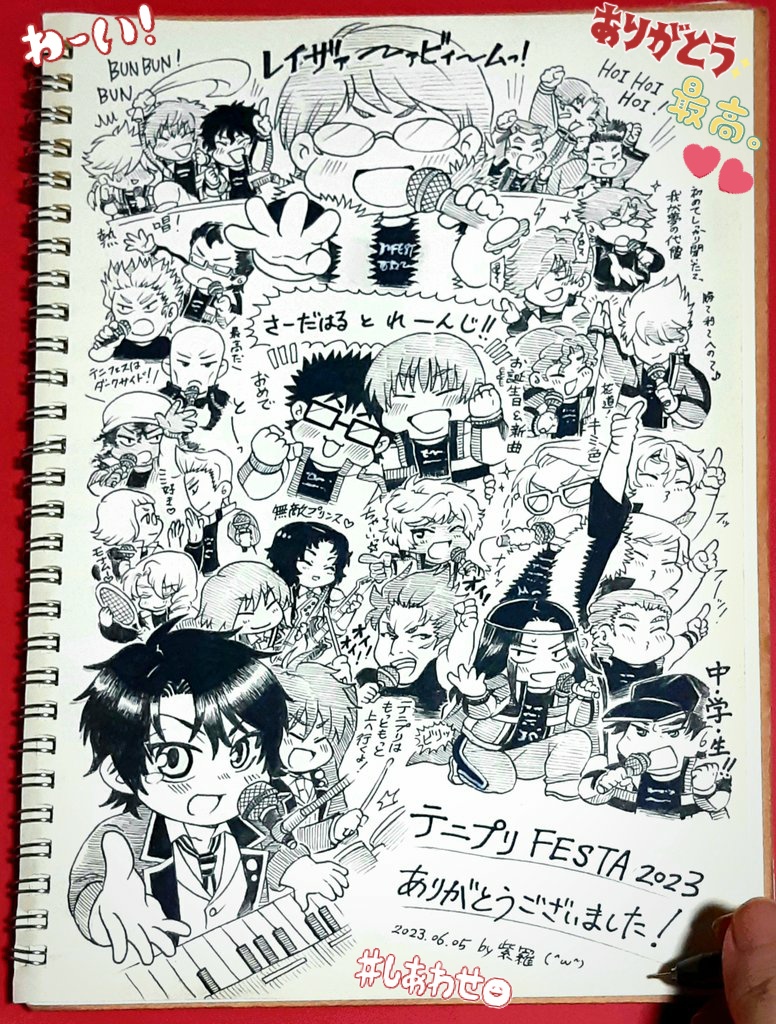 わーい!
ありがとう
最高。
BUN BUN!
BUN
レイザァ〜ァビィームっ!
HOI HOI
HOI!
熱
唱!
初めてしっかり聞いたて、
我が夢の代償
勝て利てへのて♪
さーだはる と れーんじ!!
おめで
とーっ
お誕生日&新曲
テニフェスは
ダークサイド!!
最高だ
花道
キミ色
好き♡
無敵プリンス♡
オイ!
オイ!!
フッ
フーッ!!
中・学・生!!
テニプリは
もっともっと
上へ行くよ!
ビリッ
テニプリ FESTA 2023
ありがとうございました!
2023.06.05 by 紫羅 (^ω^)
#しあわせ